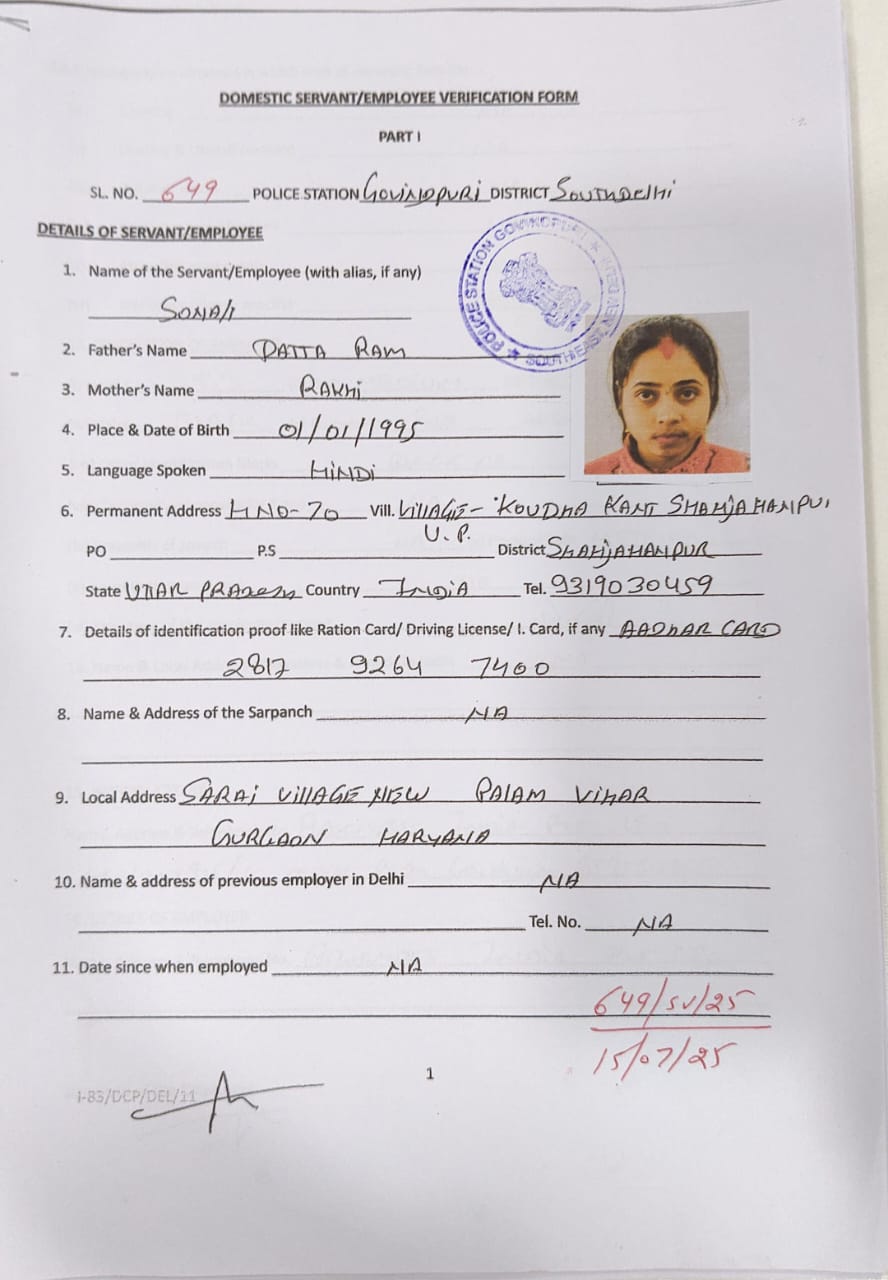 DOMESTIC SERVANT/EMPLOYEE VERIFICATION FORM
PART I
SL. NO. 649 POLICE STATION GOVINDPURI DISTRICT SOUTH DELHI
DETAILS OF SERVANT/EMPLOYEE
POLICE STATION GOVINDPURI ★ NEW DELHI ★ SOUTH EAST
1. Name of the Servant/Employee (with alias, if any)
SONALI
2. Father's Name DATTA RAM
3. Mother's Name RAKHI
4. Place & Date of Birth 01/01/1995
5. Language Spoken HINDI
6. Permanent Address HNO-70 Vill. VILLAGE- KOUDHA KANT SHAHJAHANPUR
U.P.
PO P.S District SHAHJAHANPUR
State UTTAR PRADESH Country INDIA Tel. 9319030459
7. Details of identification proof like Ration Card/ Driving License/ I. Card, if any AADHAR CARD
2817 9264 7400
8. Name & Address of the Sarpanch NA
9. Local Address SARAI VILLAGE NEW PALAM VIHAR
GURGAON HARYANA
10. Name & address of previous employer in Delhi NA
Tel. No. NA
11. Date since when employed NA
649/SV/25
15/07/25
1
I-83/DCP/DEL/11